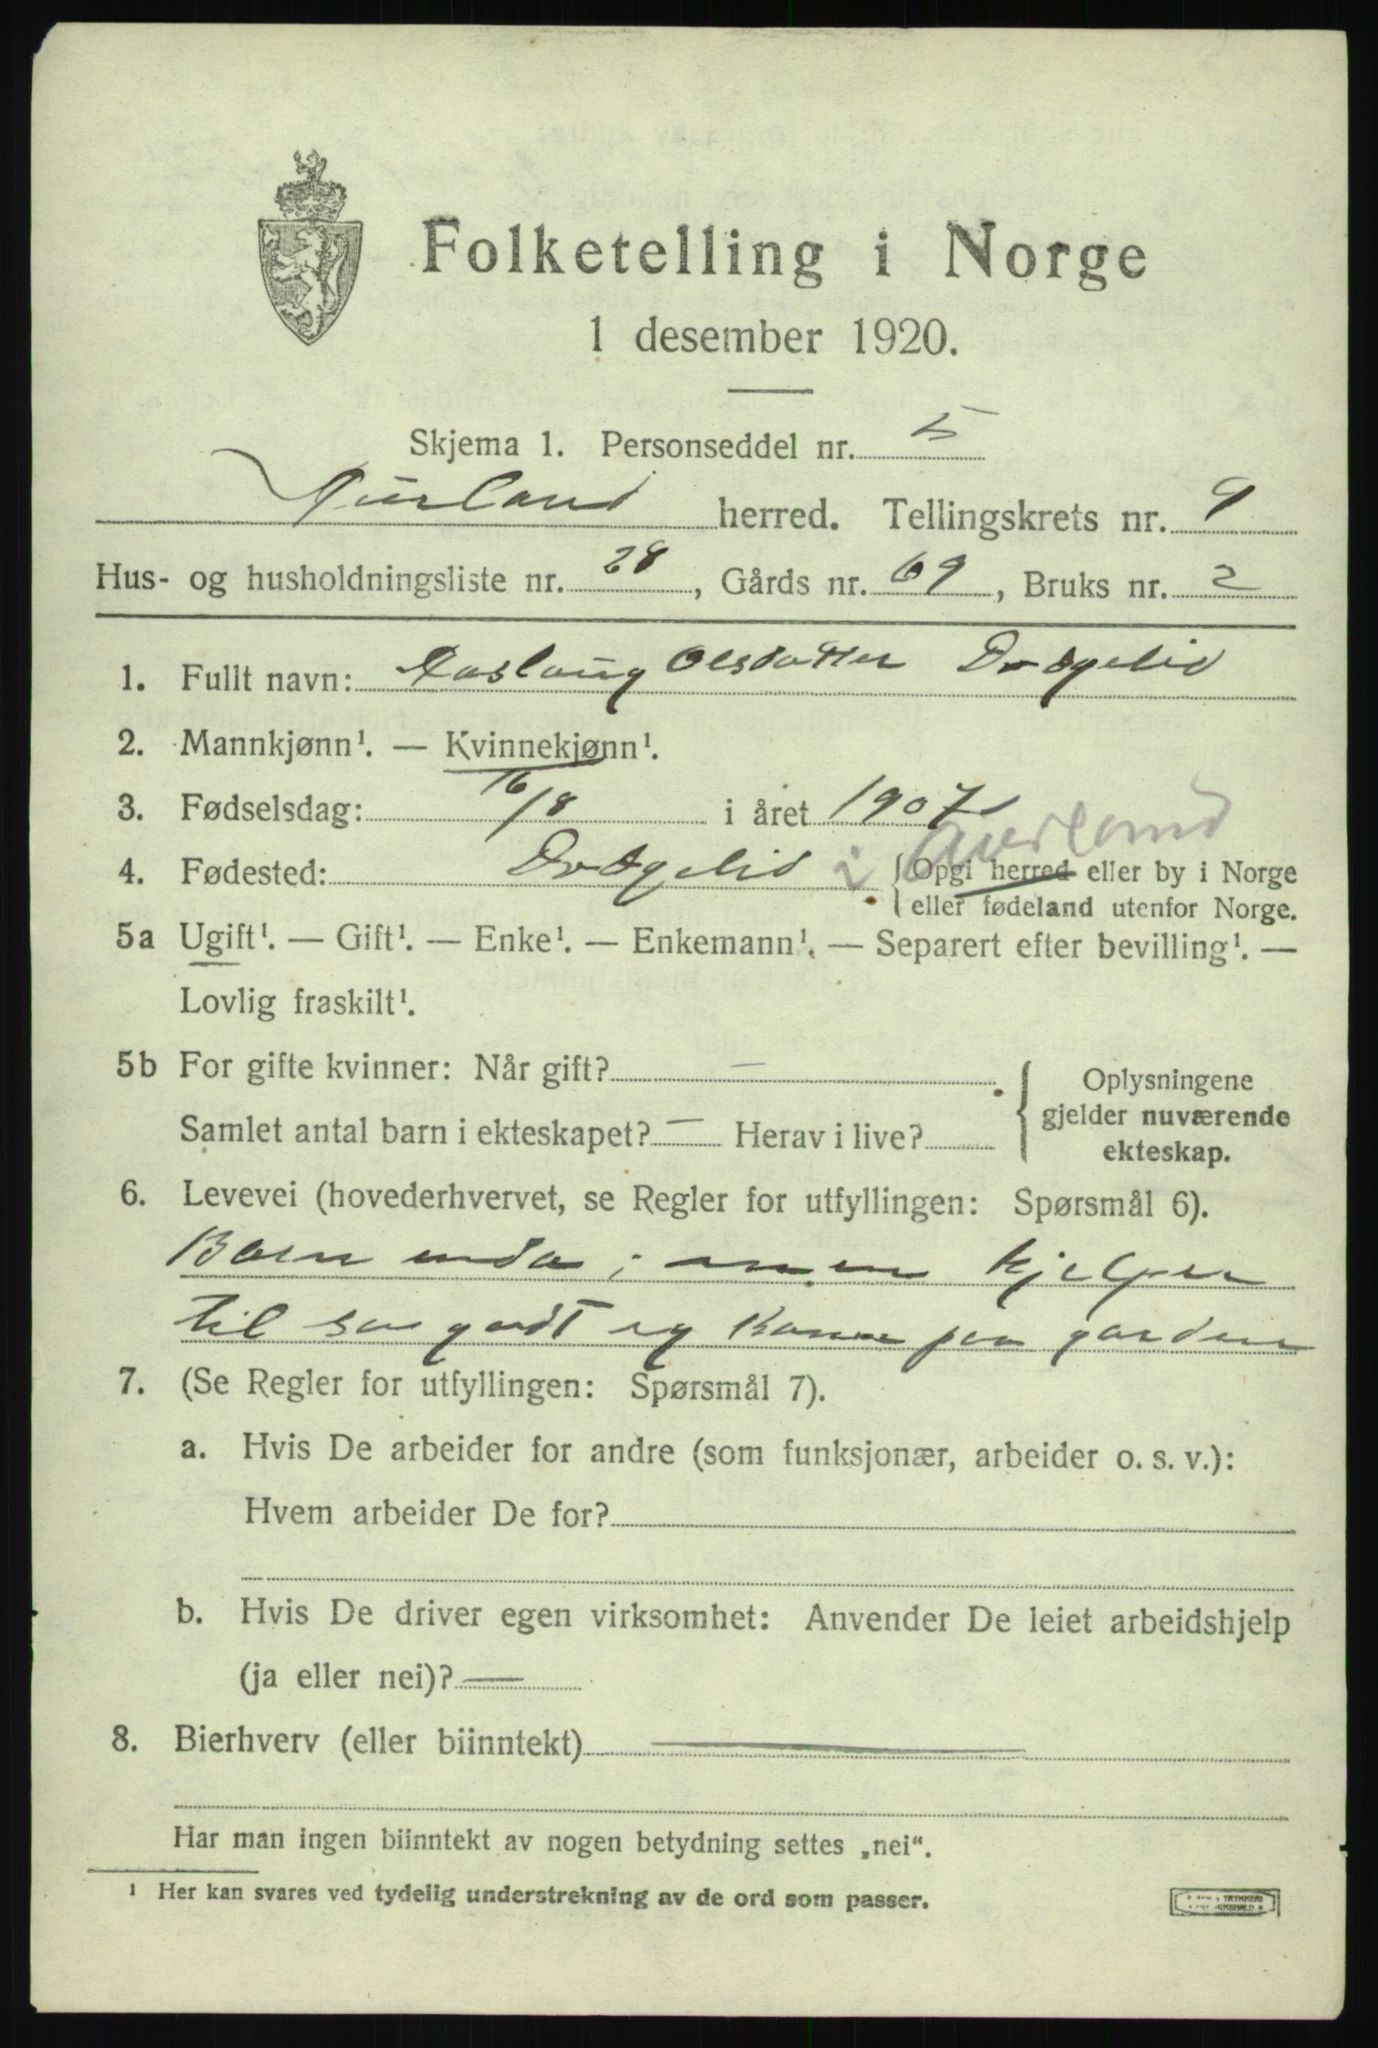 Folketelling i Norge
1 desember 1920.
Skjema 1. Personseddel nr. 5
Aurland herred. Tellingskrets nr. 9
Hus- og husholdningsliste nr. 28, Gårds nr. 69, Bruks nr. 2
1. Fullt navn: Aaslaug Olsdatter Drægelid
2. Mannkjønn¹. — Kvinnekjønn¹.
3. Fødselsdag: 16/8 i året 1907
4. Fødested: Drægelid i Aurland {Opgi herred eller by i Norge
eller fødeland utenfor Norge.
5a Ugift¹. — Gift¹. — Enke¹. — Enkemann¹. — Separert efter bevilling¹. —
Lovlig fraskilt¹.
5b For gifte kvinner: Når gift? —
Samlet antal barn i ekteskapet? — Herav i live?
Oplysningene
gjelder nuværende
ekteskap.
6. Levevei (hovederhvervet, se Regler for utfyllingen: Spørsmål 6).
Barn enda; men hjelper
til saa godt eg kann paa garden
7. (Se Regler for utfyllingen: Spørsmål 7).
a. Hvis De arbeider for andre (som funksjonær, arbeider o. s. v.):
Hvem arbeider De for?
b. Hvis De driver egen virksomhet: Anvender De leiet arbeidshjelp
(ja eller nei)? —
8. Bierhverv (eller biinntekt) —
Har man ingen biinntekt av nogen betydning settes „nei“.
¹ Her kan svares ved tydelig understrekning av de ord som passer.